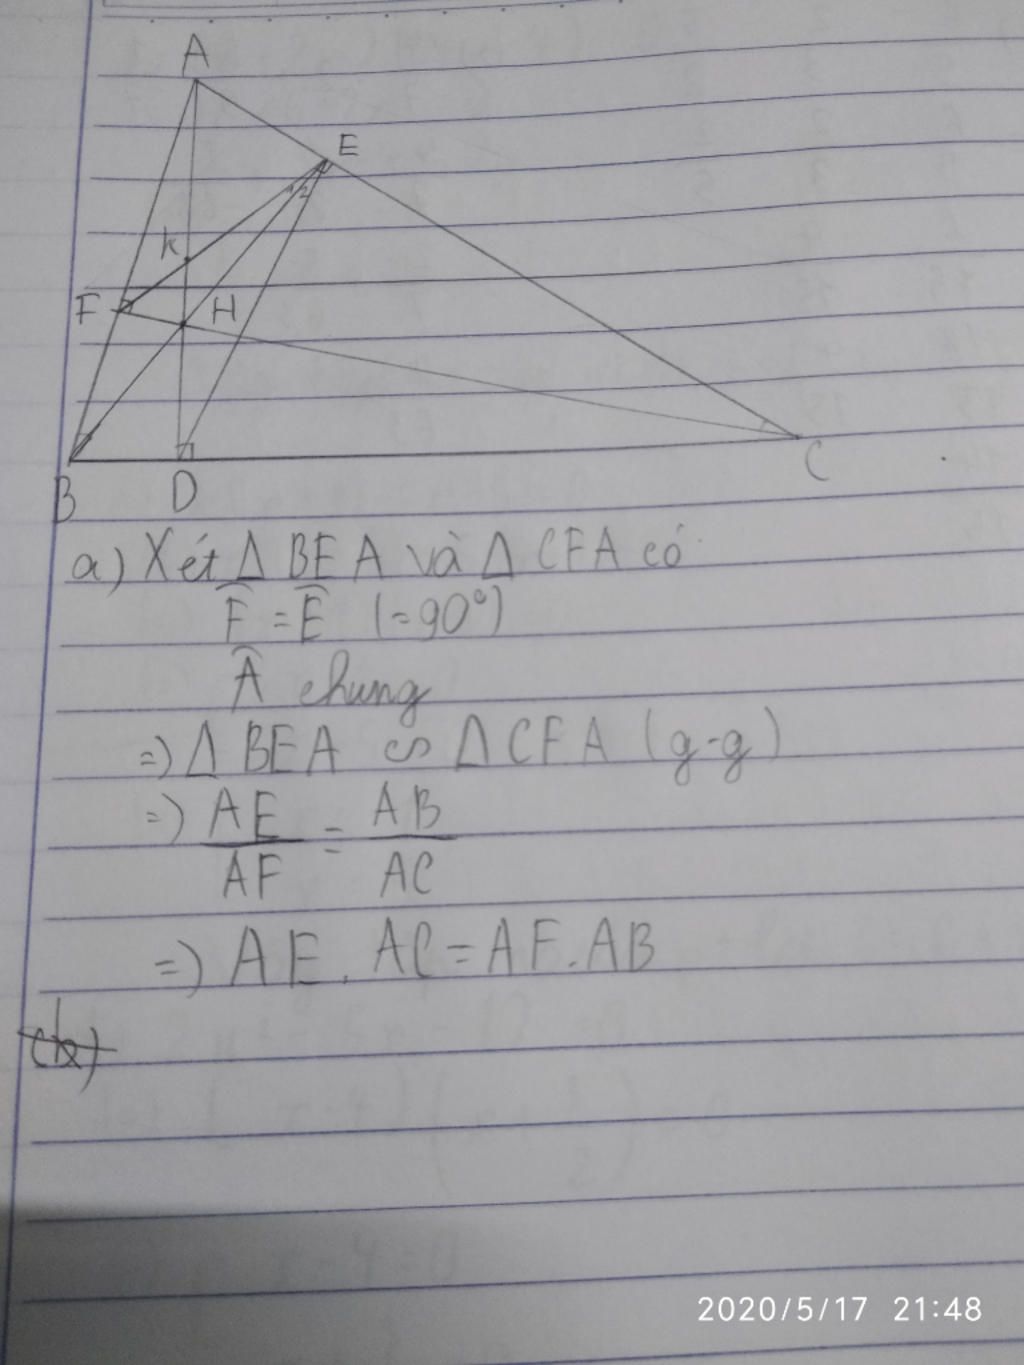 A
E
1 2
k
F
H
B
D
C
a) Xét Δ BEA và Δ CFA có
F̂ = Ê (=90°)
Â chung
=) Δ BEA ∽ Δ CFA (g-g)
=) AE/AF = AB/AC
=) AE. AC = AF. AB
2020/5/17 21:48